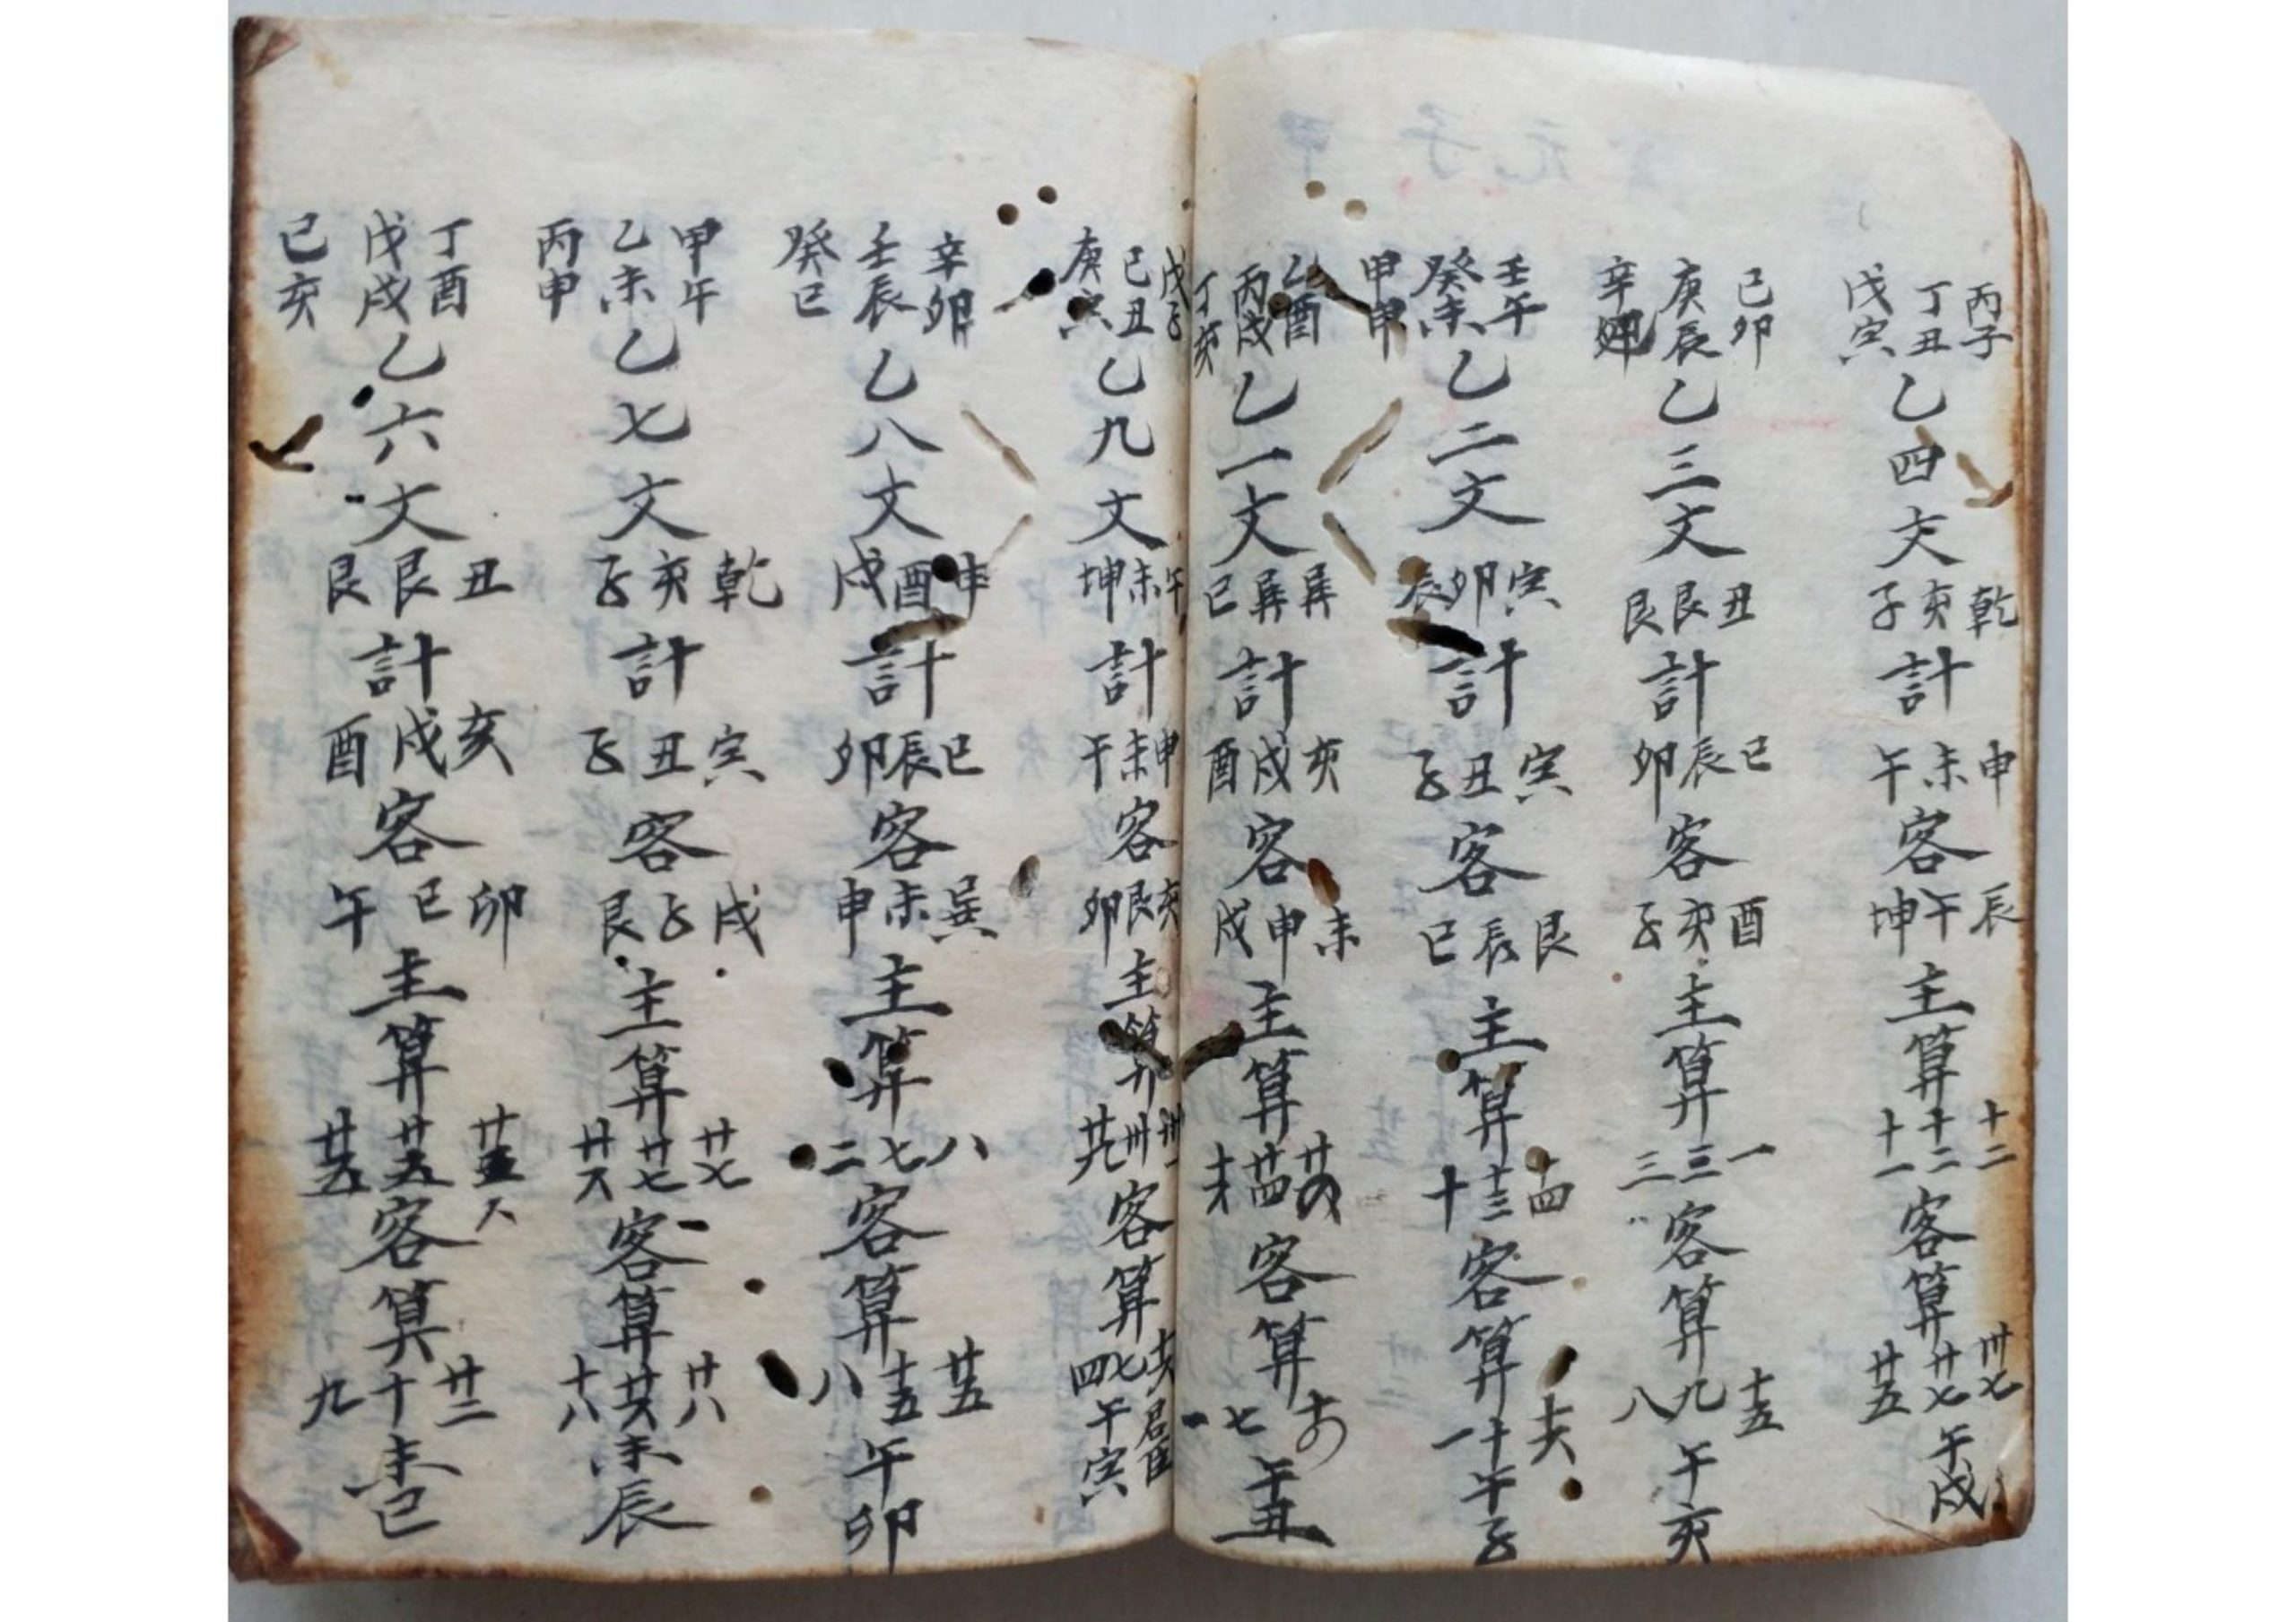 丙子丁丑戊寅乙四文乾亥子計申未午客辰午坤主算十二十二十一客算卅七廿七廿五午戌
己卯庚辰辛巳乙三文丑艮艮計巳辰卯客酉亥子主算一三三客算十五九八午亥
壬午癸未甲申乙二文寅卯辰計寅丑子客艮辰巳主算十四十三十客算十六十一午子
乙酉丙戌丁亥乙一文巽巽巳計亥戌酉客未申戌主算廿四客算七一午丑
戊子己丑庚寅乙九文午未坤計申未午客亥艮卯主算卅一卅廿九客算十六七四君臣午寅
辛卯壬辰癸巳乙八文申酉戌計巳辰卯客巽未申主算八七二客算廿五十五八午卯
甲午乙未丙申乙七文乾亥子計寅丑子客戌子艮主算廿七廿七廿六客算廿八廿六十八未辰
丁酉戊戌己亥乙六文丑艮艮計亥戌酉客卯巳午主算廿五六廿五廿五客算廿二十九未巳